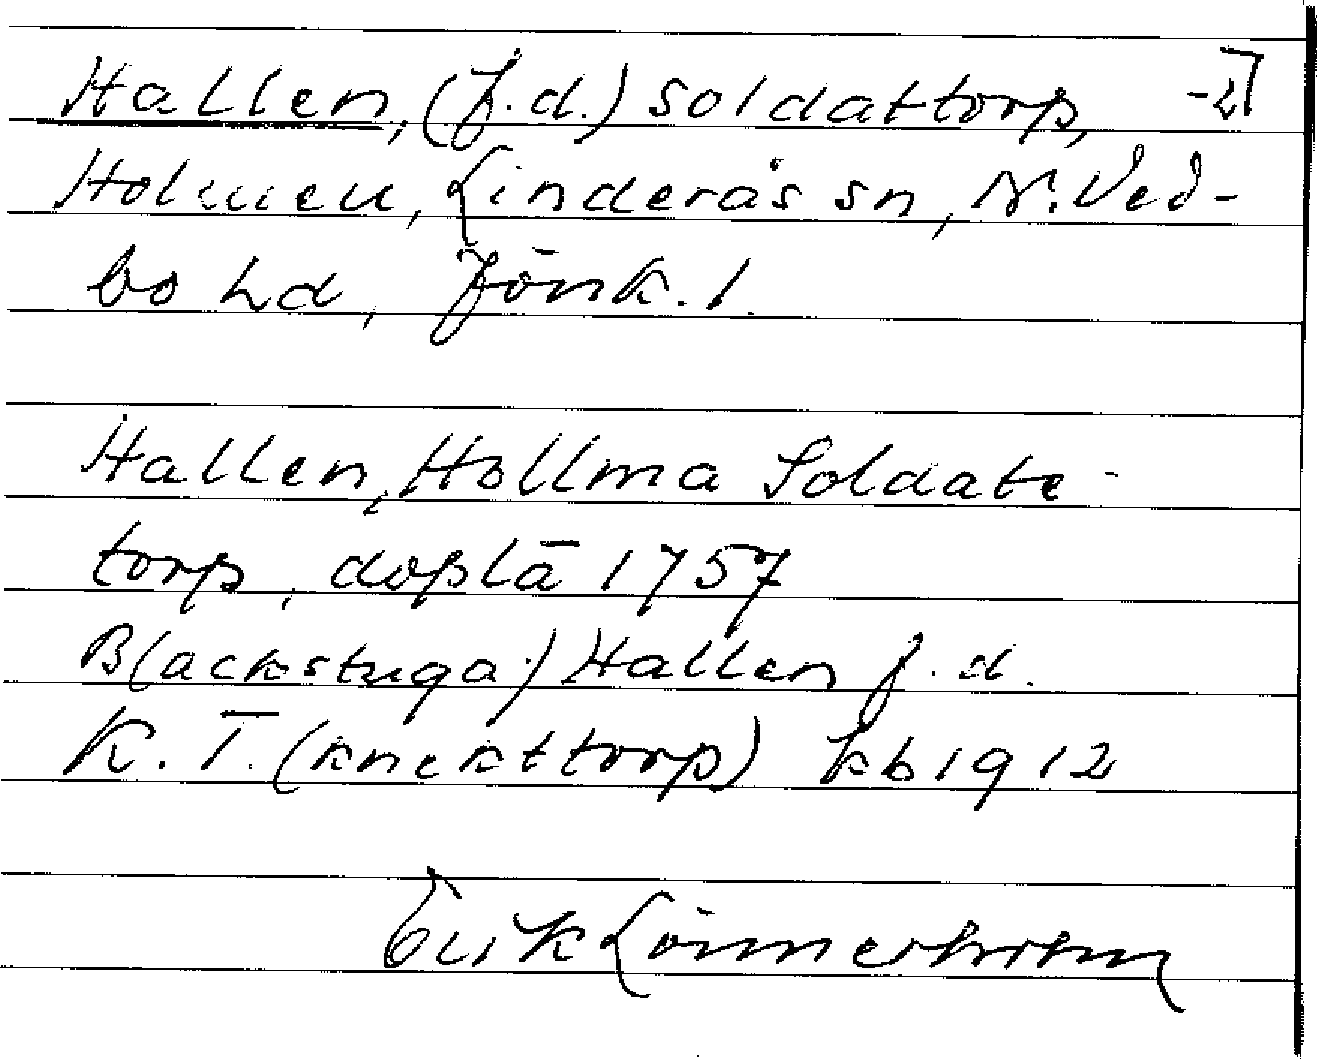 Hallen, (f.d.) soldattorp,
Holmen, Linderås sn, N. Ved-
bo hd, Jönk. l.
Hallen, Hollma Soldate-
torp, doplä 1757
B(ackstuga) Hallen f.d.
K. T. (knekttorp) kb 1912
Erik Lönnerholm